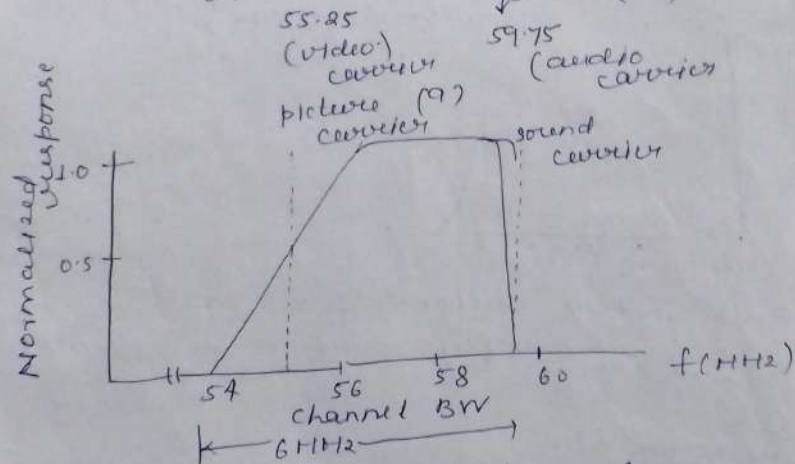 55.25
(video)
carrier
59.75
(audio
carrier
picture (9)
carrier
sound
carrier
Normalized
response
1.0
0.5
54
56
58
60
f(MHz)
channel BW
6MHz